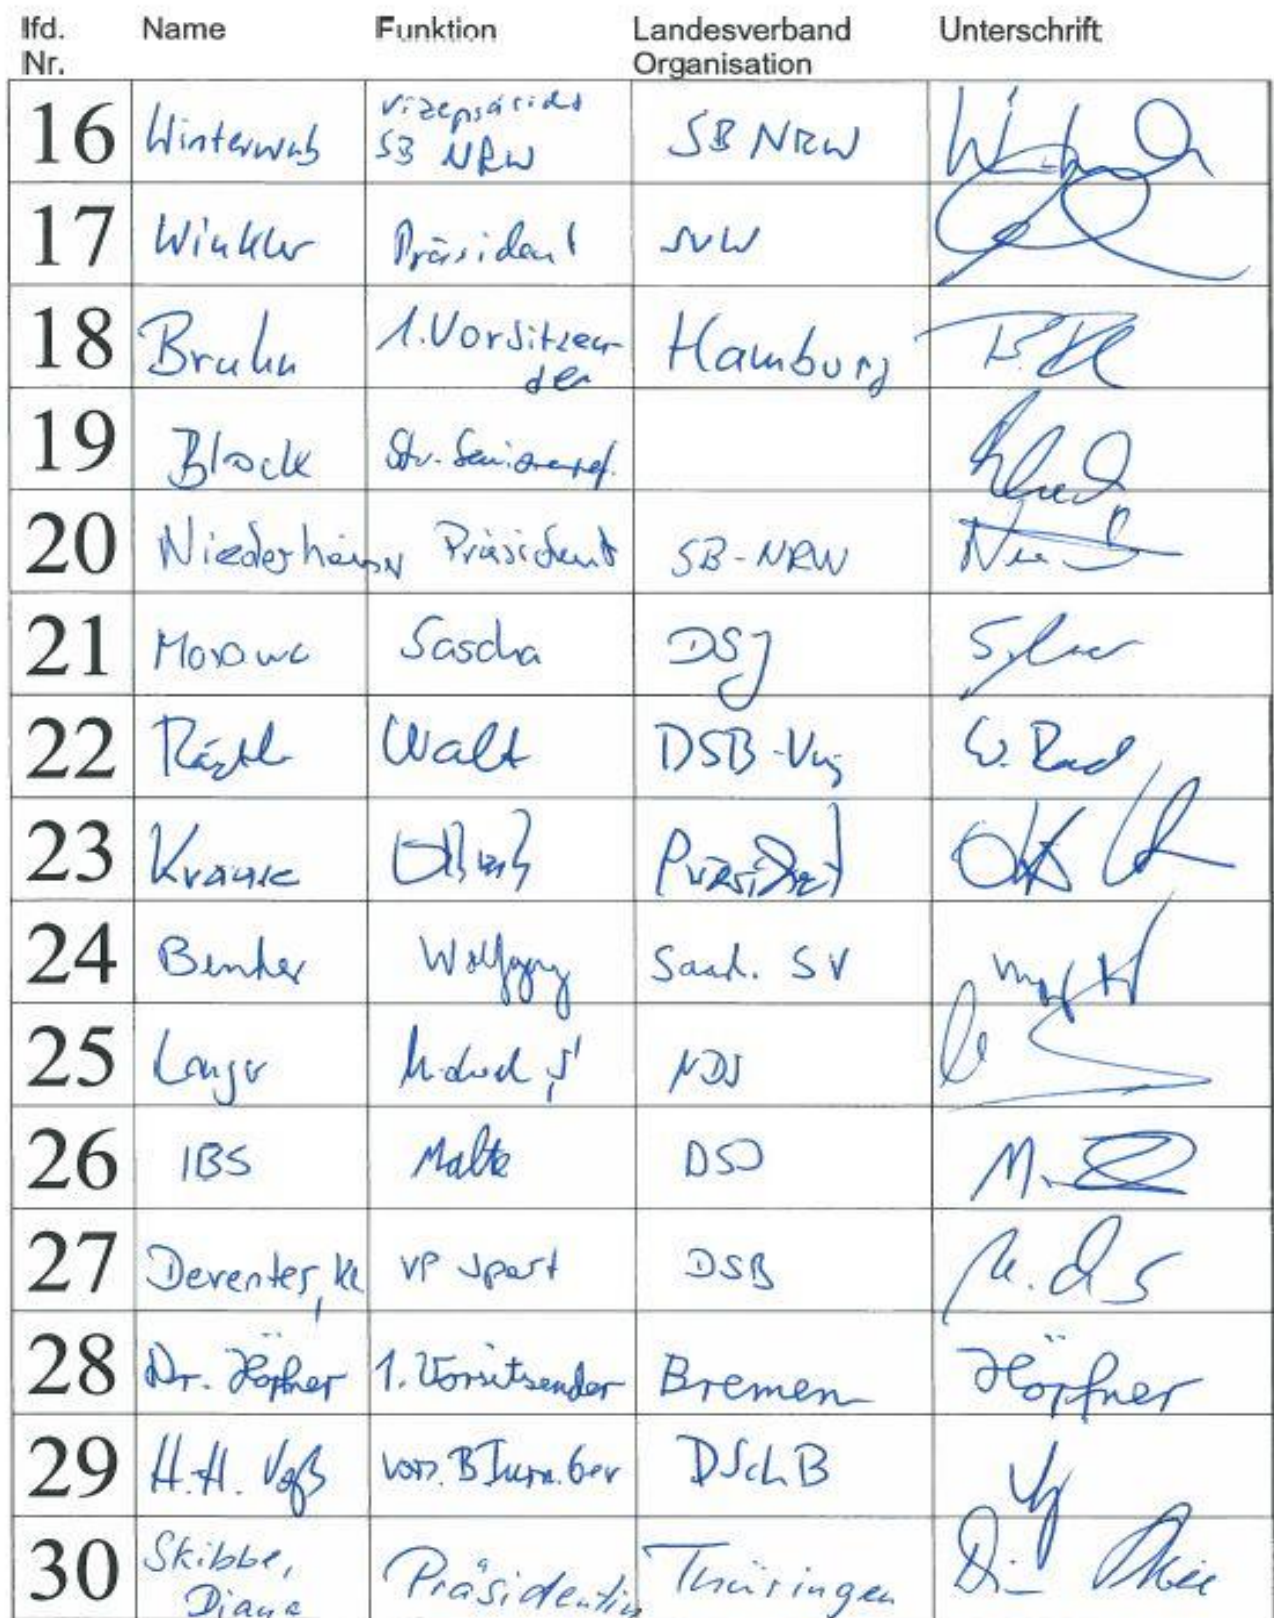 lfd. Name Funktion Landesverband Unterschrift
Nr. Organisation
16 Vizepräsident
SB NRW SB NRW
17 Winkler Präsident SVW
18 Bruhn 1. Vorsitzen- Hamburg
der
19 Block Stv. Seniorenref.
20 Niederhäuser Präsident SB-NRW
21 Morawa Sascha DSJ
22 Walt DSB-
23 Krause Präsident
24 Benker Wolfgang Saarl. SV
25 Langer Michael S NDS
26 IBS Malte DSJ
27 Deventer, Kl VP Sport DSB
28 Dr. Höpfner 1. Vorsitzender Bremen Höpfner
29 H.-H. Voß Vors. BTurn.Ger DSchB
30 Skibbe,
Diana Präsidentin Thüringen